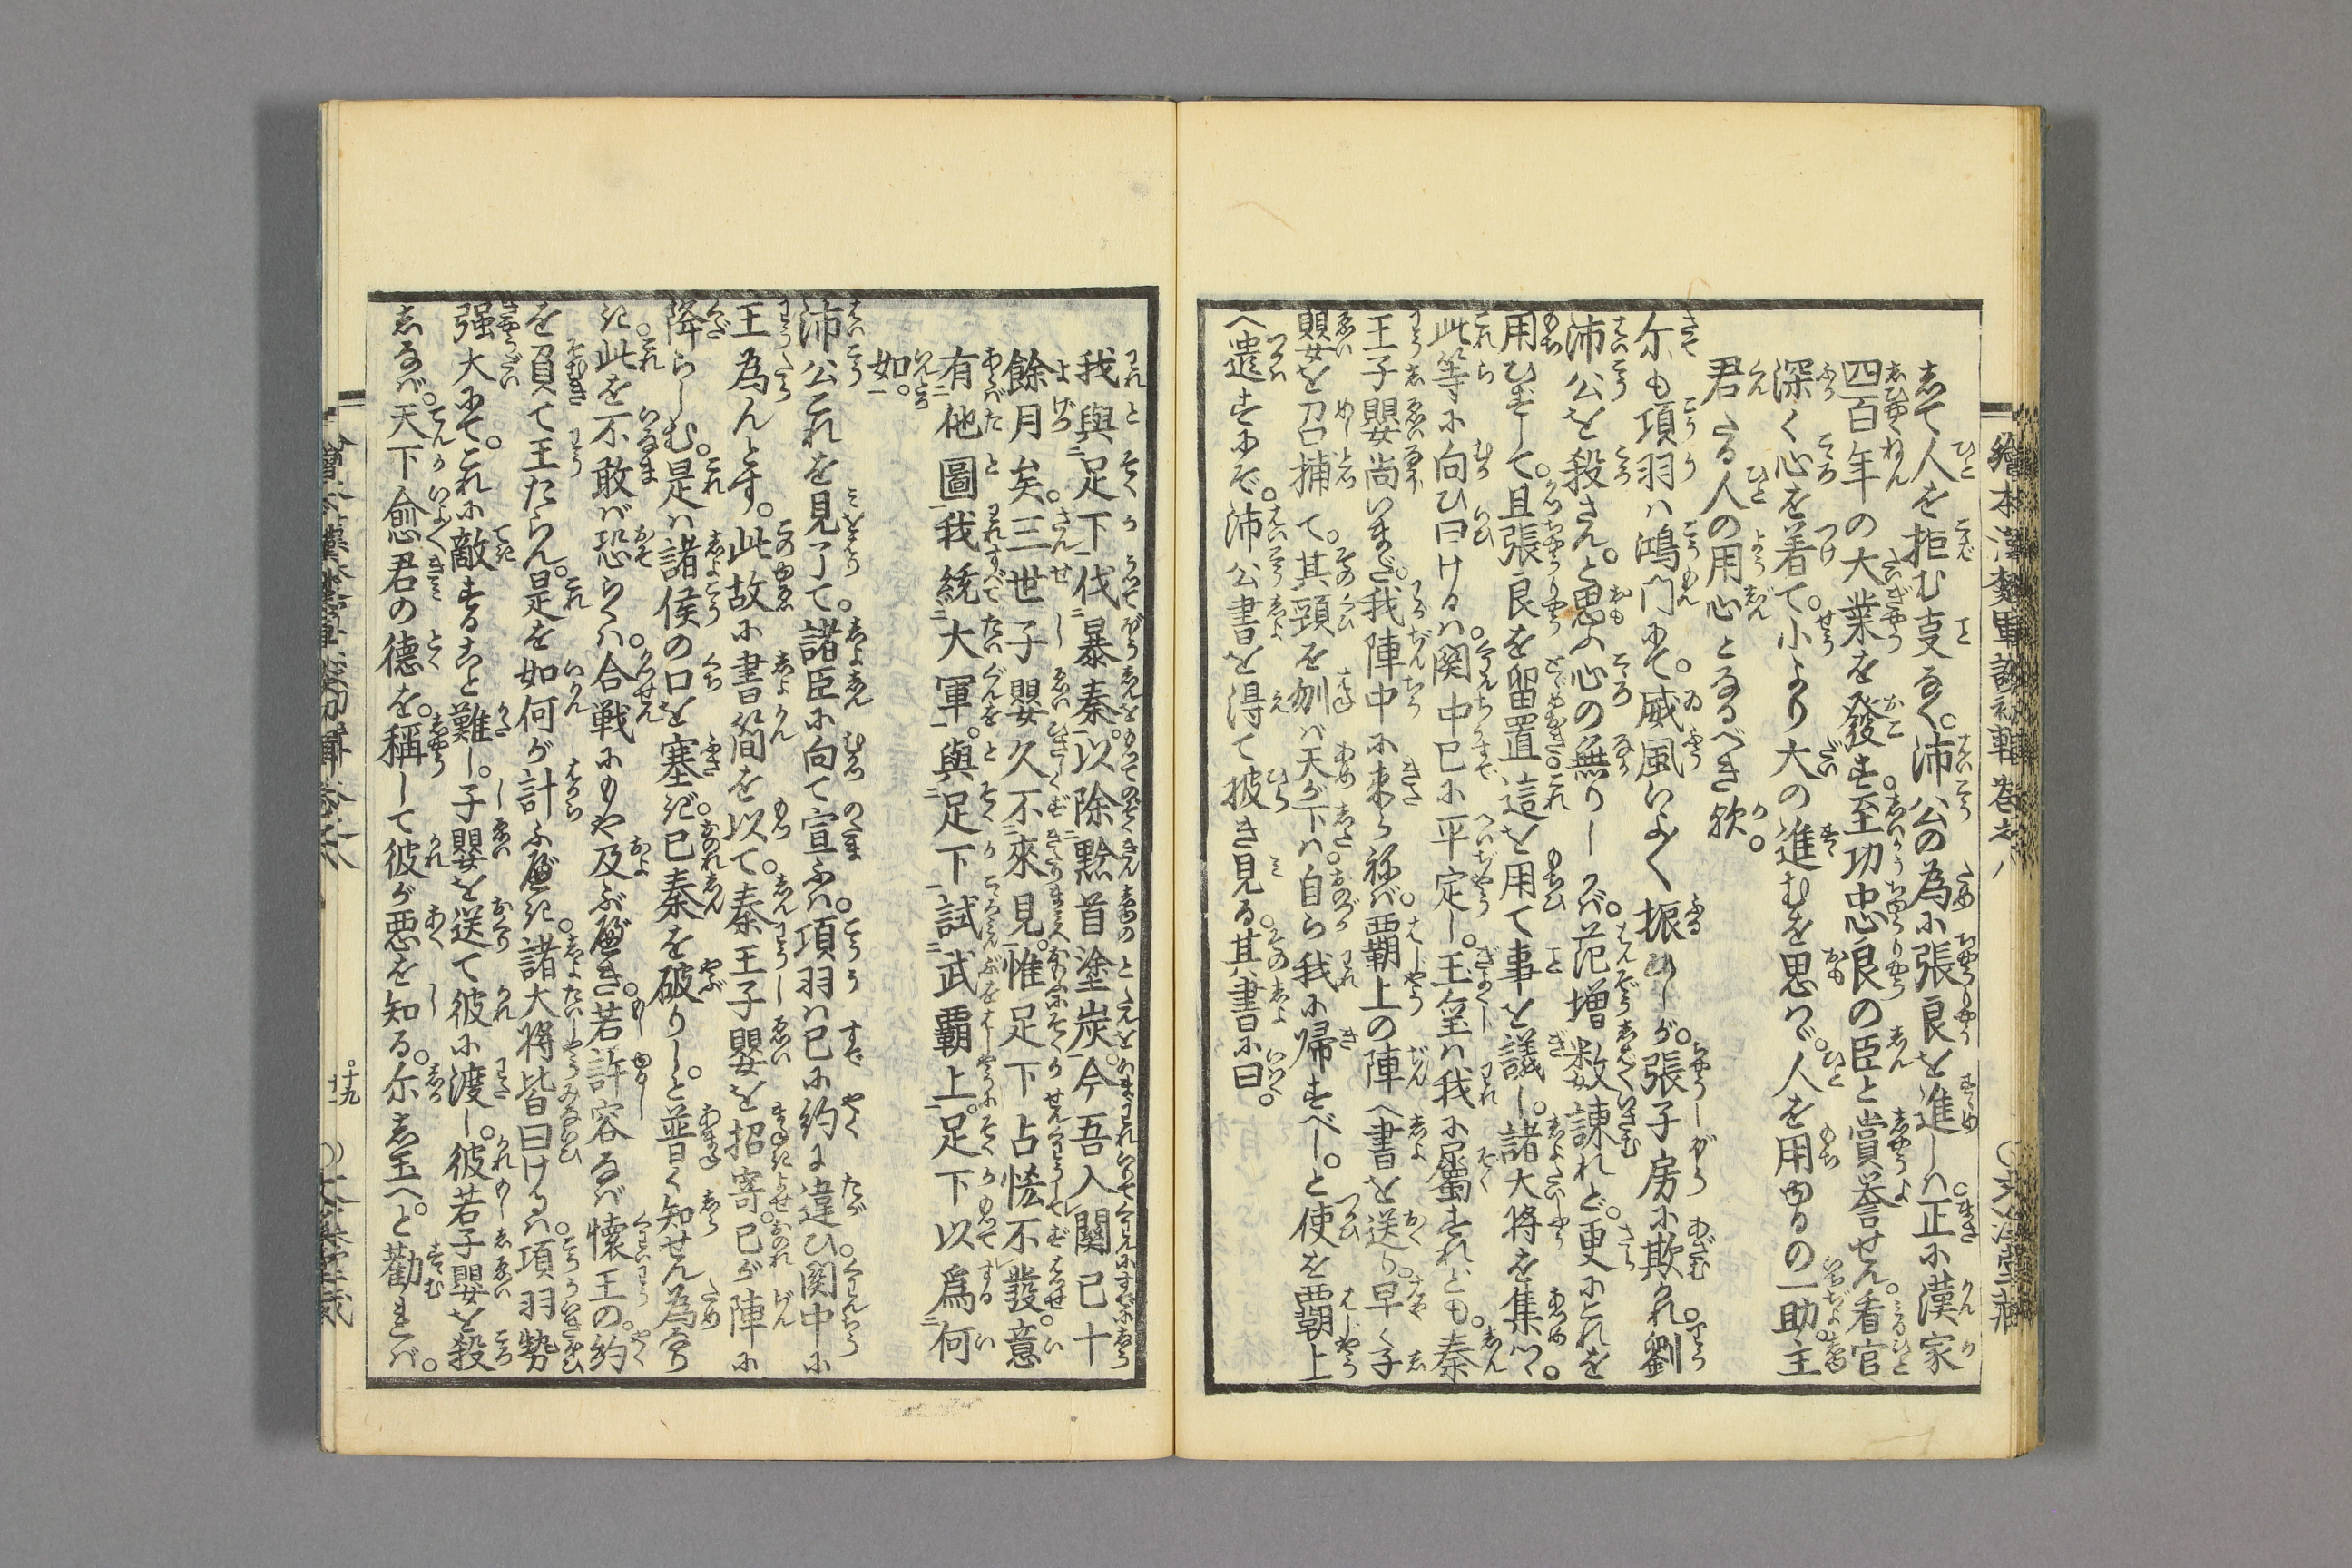 繪本漢楚軍談初輯巻之八
志て人を拒む支なく。沛公の為に張良を進しハ。正に漢家
四百年の大業を發す。至功忠良の臣と賞誉せん。看官
深く心を着て。小より大の進むを思ハヾ。人を用ゆるの一助。主
君たる人の用心となるべき歟。
尓も項羽ハ鴻門にて。威風いよ〳〵振ひしが。張子房に欺かれ。劉
沛公を殺さん。と思ふ心の無りしかバ。范増数諌れど。更にこれを
用ひずして。且張良を留置。這を用て事を議し。諸大将を集へ。
此等に向ひ曰けるハ。関中已に平定し。玉璽ハ我に属すれども。秦
王子嬰尚いまだ。我陣中に来らねバ。覇上の陣へ書を送り。早く子
嬰を召捕て。其頸を刎バ天が下ハ。自ら我に帰すべし。と使を覇上
へ遣すにぞ。沛公書を得て披き見る。其書に曰。
我與足下伐暴秦。以除黔首塗炭。今吾入關已十
餘月矣。三世子嬰久不來見。惟足下占恡不發。意
有他圖。我統大軍。與足下試武覇上。足下以爲何
如。
沛公これを見了て。諸臣に向て宣ふハ。項羽ハ已に約に違ひ。関中に
王為んとす。此故に書簡を以て。秦王子嬰を招寄。已が陣に
降らしむ。是ハ諸侯の口を塞ぎ。已秦を破りし。と普く知せん為なり
。此を不敢バ恐らくハ。合戦にもや及ぶべき。若許容なバ懐王の。約
を負て王たらん。是を如何が計ふべき。諸大将皆曰けるハ。項羽勢
强大にて。これに敵することに難し。子嬰を送て彼に渡し。彼若子嬰を殺
しなバ。天下愈君の德を。稱して彼が悪を知る。尓し玉へ。と勸れバ。
十九